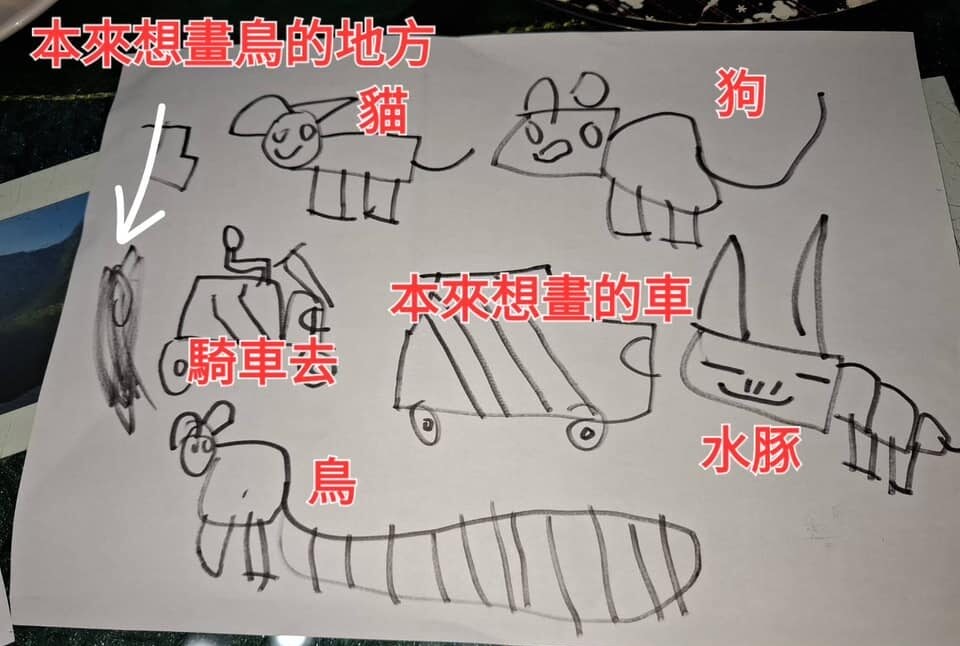 本來想畫鳥的地方
貓
狗
本來想畫的車
騎車去
水豚
鳥